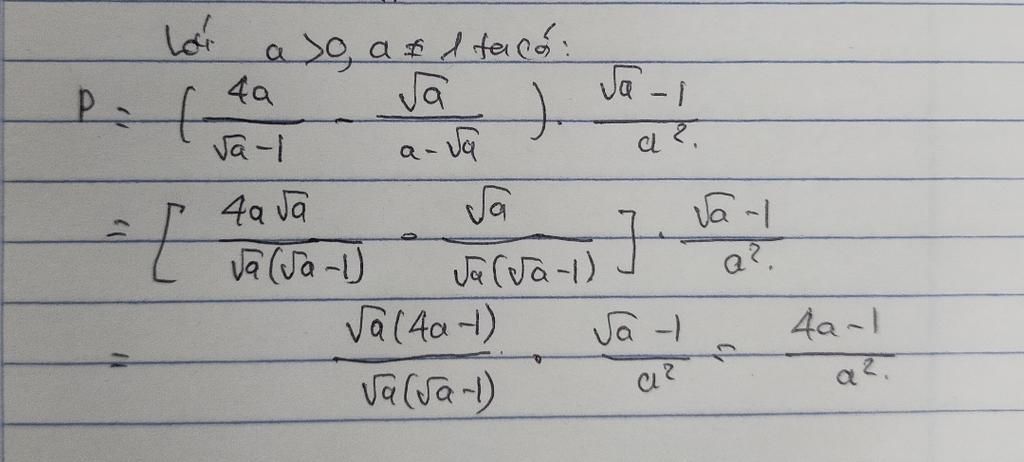 Với a > 0, a ≠ 1 ta có:
P = ( 4a / √a - 1 - √a / a - √a ) . √a - 1 / a².
= [ 4a √a / √a(√a - 1) - √a / √a(√a - 1) ] . √a - 1 / a².
= √a(4a - 1) / √a(√a - 1) . √a - 1 / a² = 4a - 1 / a².